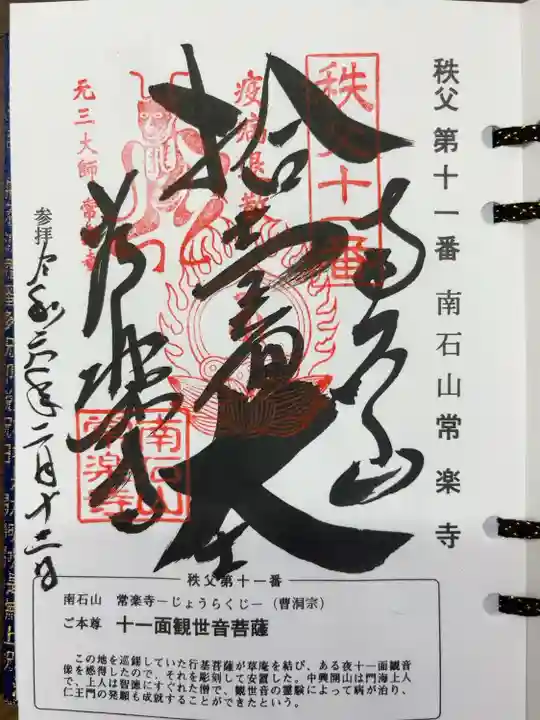 秩父 第十一番 南石山常楽寺
秩父十一番
疫病退散
元三大師 常楽寺
南石山
拾壹番
大
常楽寺
南石山
常楽寺
参拝
二月十二日
秩父第十一番
南石山 常楽寺－じょうらくじ－（曹洞宗）
ご本尊 十一面観世音菩薩
この地を巡錫していた行基菩薩が草庵を結び、ある夜十一面観音
像を感得したので、それを彫刻して安置した。中興開山は門海上人
で、上人は智徳にすぐれた僧で、観世音の霊験によって病が治り、
仁王門の発願も成就することができたという。